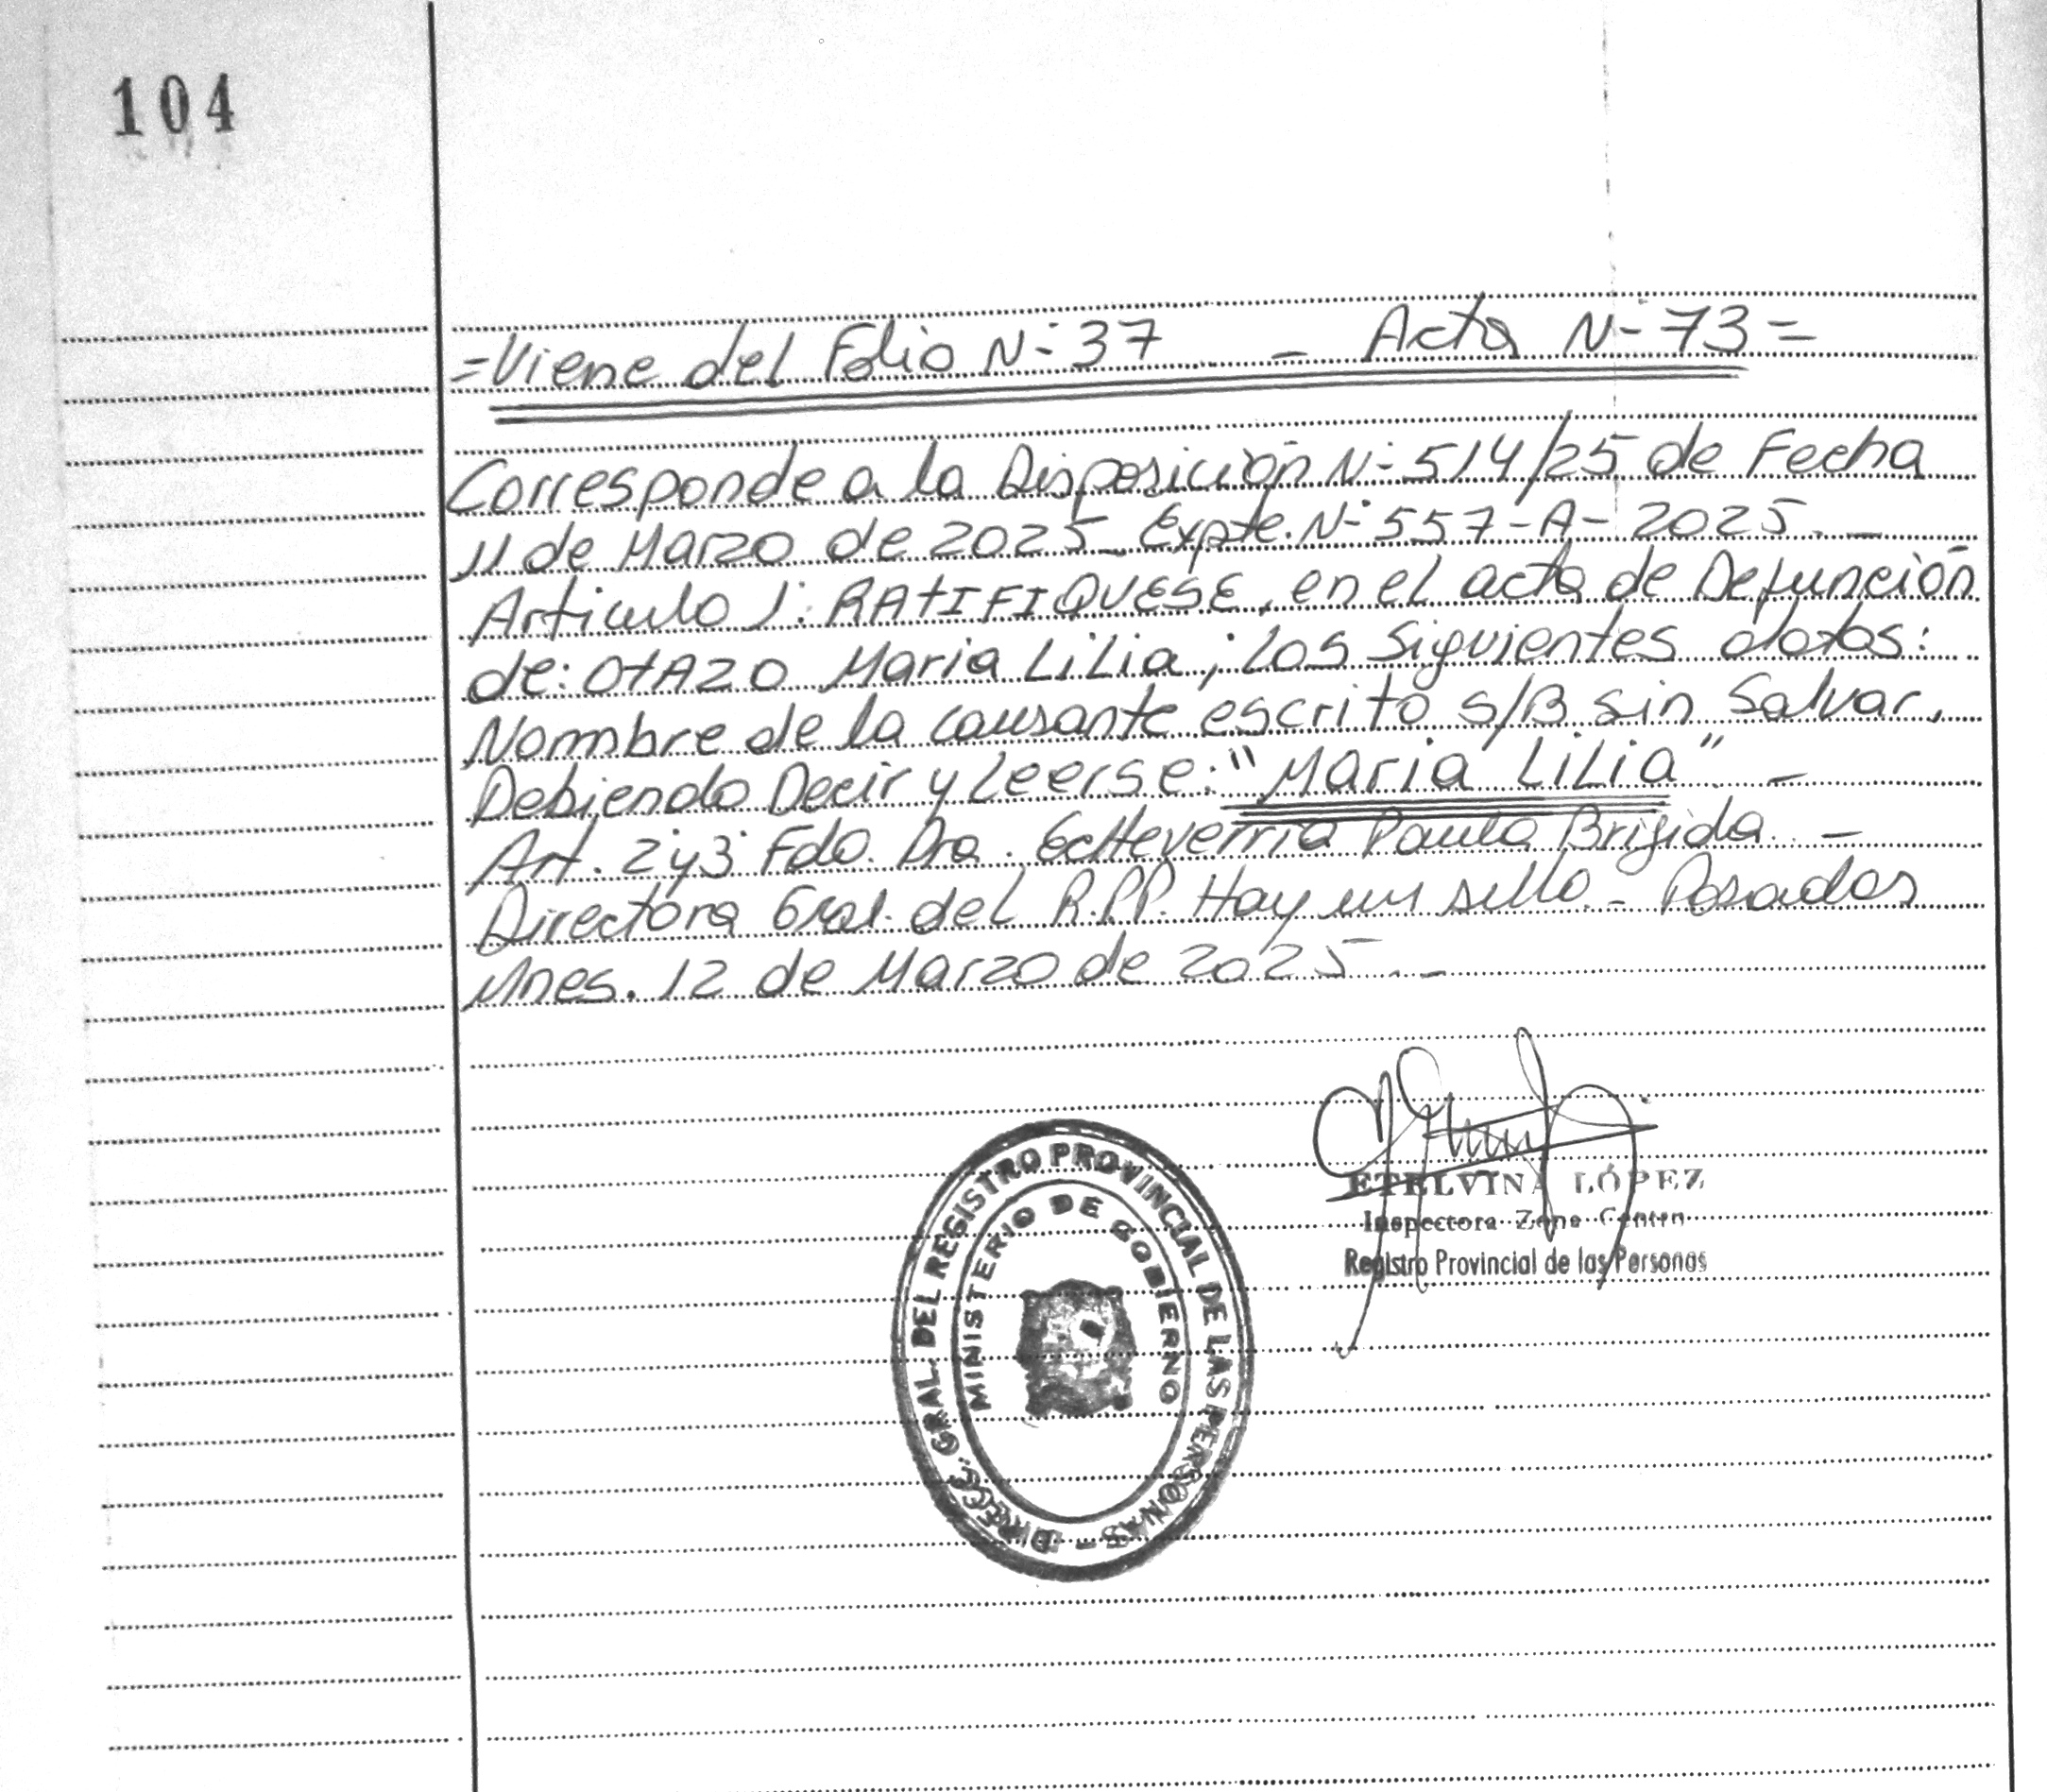 104
=Viene del Folio N-º 37 - Acta N-º 73=
Corresponde a la Disposición N-º 514/25 de Fecha
11 de Marzo de 2025 - Expte. N-º 557-A-2025. -
Articulo 1º: RAtIFIQUESE, en el acta de Defunción
de: OtAZO Maria LiLia; los Siguientes datos:
Nombre de la causante escrito S/B sin Salvar,
Debiendo Decir y Leerse: "Maria LiLia" -
Art. 2º y 3º Fdo. Dra. Echeverria Paula Brigida. -
Directora Gral. del R.P.P. Hay un sello. - Posadas
Mnes. 12 de Marzo de 2025. -
ETELVINA LÓPEZ
Inspectora Zona Centro
Registro Provincial de las Personas
DIRECC. GRAL. DEL REGISTRO PROVINCIAL DE LAS PERSONAS -
MINISTERIO DE GOBIERNO